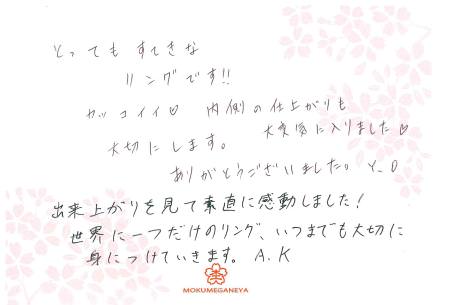 とっても すてきな
リングです!!
カッコイイ♡ 内側の仕上がりも
大変気に入りました♡
大切にします。
ありがとうございました。 Y.O
出来上がりを見て素直に感動しました!
世界に一つだけのリング、いつまでも大切に
身につけていきます。 A.K
MOKUMEGANEYA